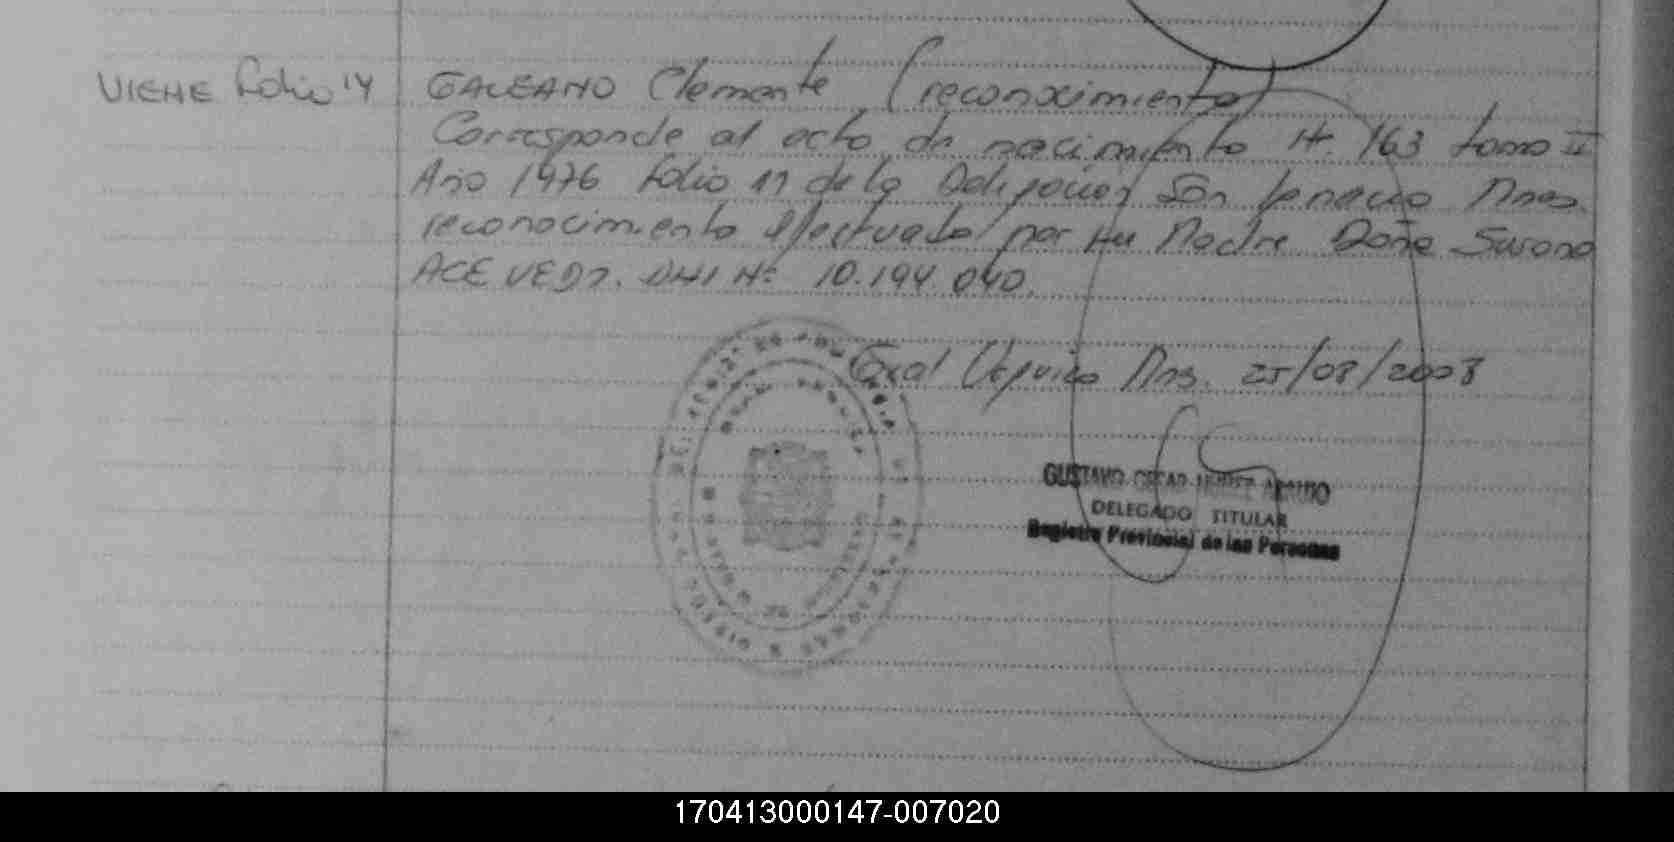 VIENE folio 14
GALEANO Clemente (reconocimiento)
Corresponde al acto de nacimiento N° 163 tomo II
Año 1976 folio 11 de la Delegación San Ignacio Mnes.
reconocimiento efectuado por su Madre Doña Susana
ACEVEDO. DNI N° 10.194.040.
Gral Urquiza Mns. 25/08/2008
GUSTAVO OSCAR NUÑEZ
DELEGADO TITULAR
Registro Provincial de las Personas
170413000147-007020